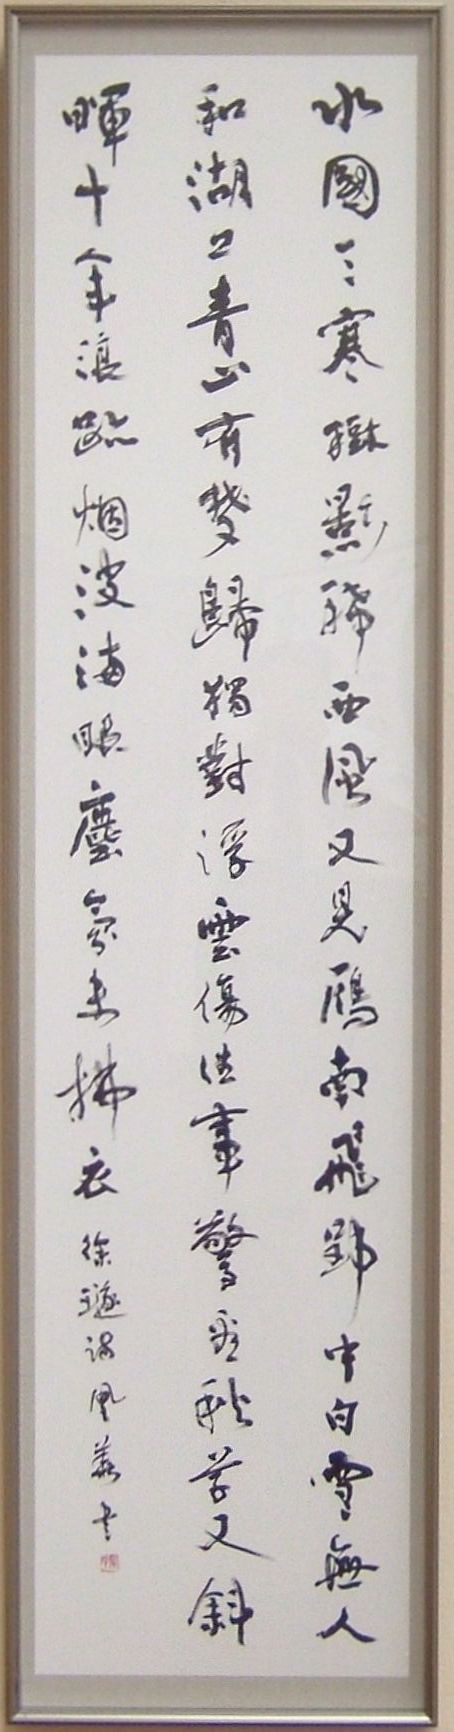 水國天寒樹影稀西風又見鴈南飛郢中白雪無人
和湖口青山有夢歸獨對浮雲傷往事驚看秋草又斜
暉十年浪跡烟波滿眼塵氛未拂衣 徐璲詩 風